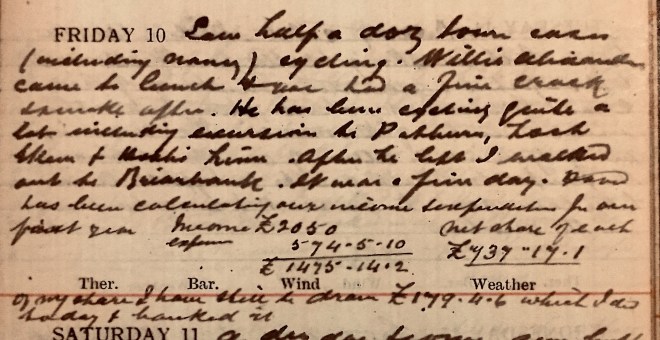 FRIDAY 10 Saw half a doz town cases
(including nancy) cycling. Willie Alexander
came to lunch & we had a fine crack
after. He has been cycling quite a
lot including excursion to
& . After he left I walked
out to Briarbank. It was a fine day.
has been calculating our income & expenditure for our
first year Income £2050 net share of each
expense 574-5-10
£1475-14-2 £737-17-1
Ther. Bar. Wind Weather
of my share I have still to draw £179-4-6 which I did
today & banked it
SATURDAY 11 a